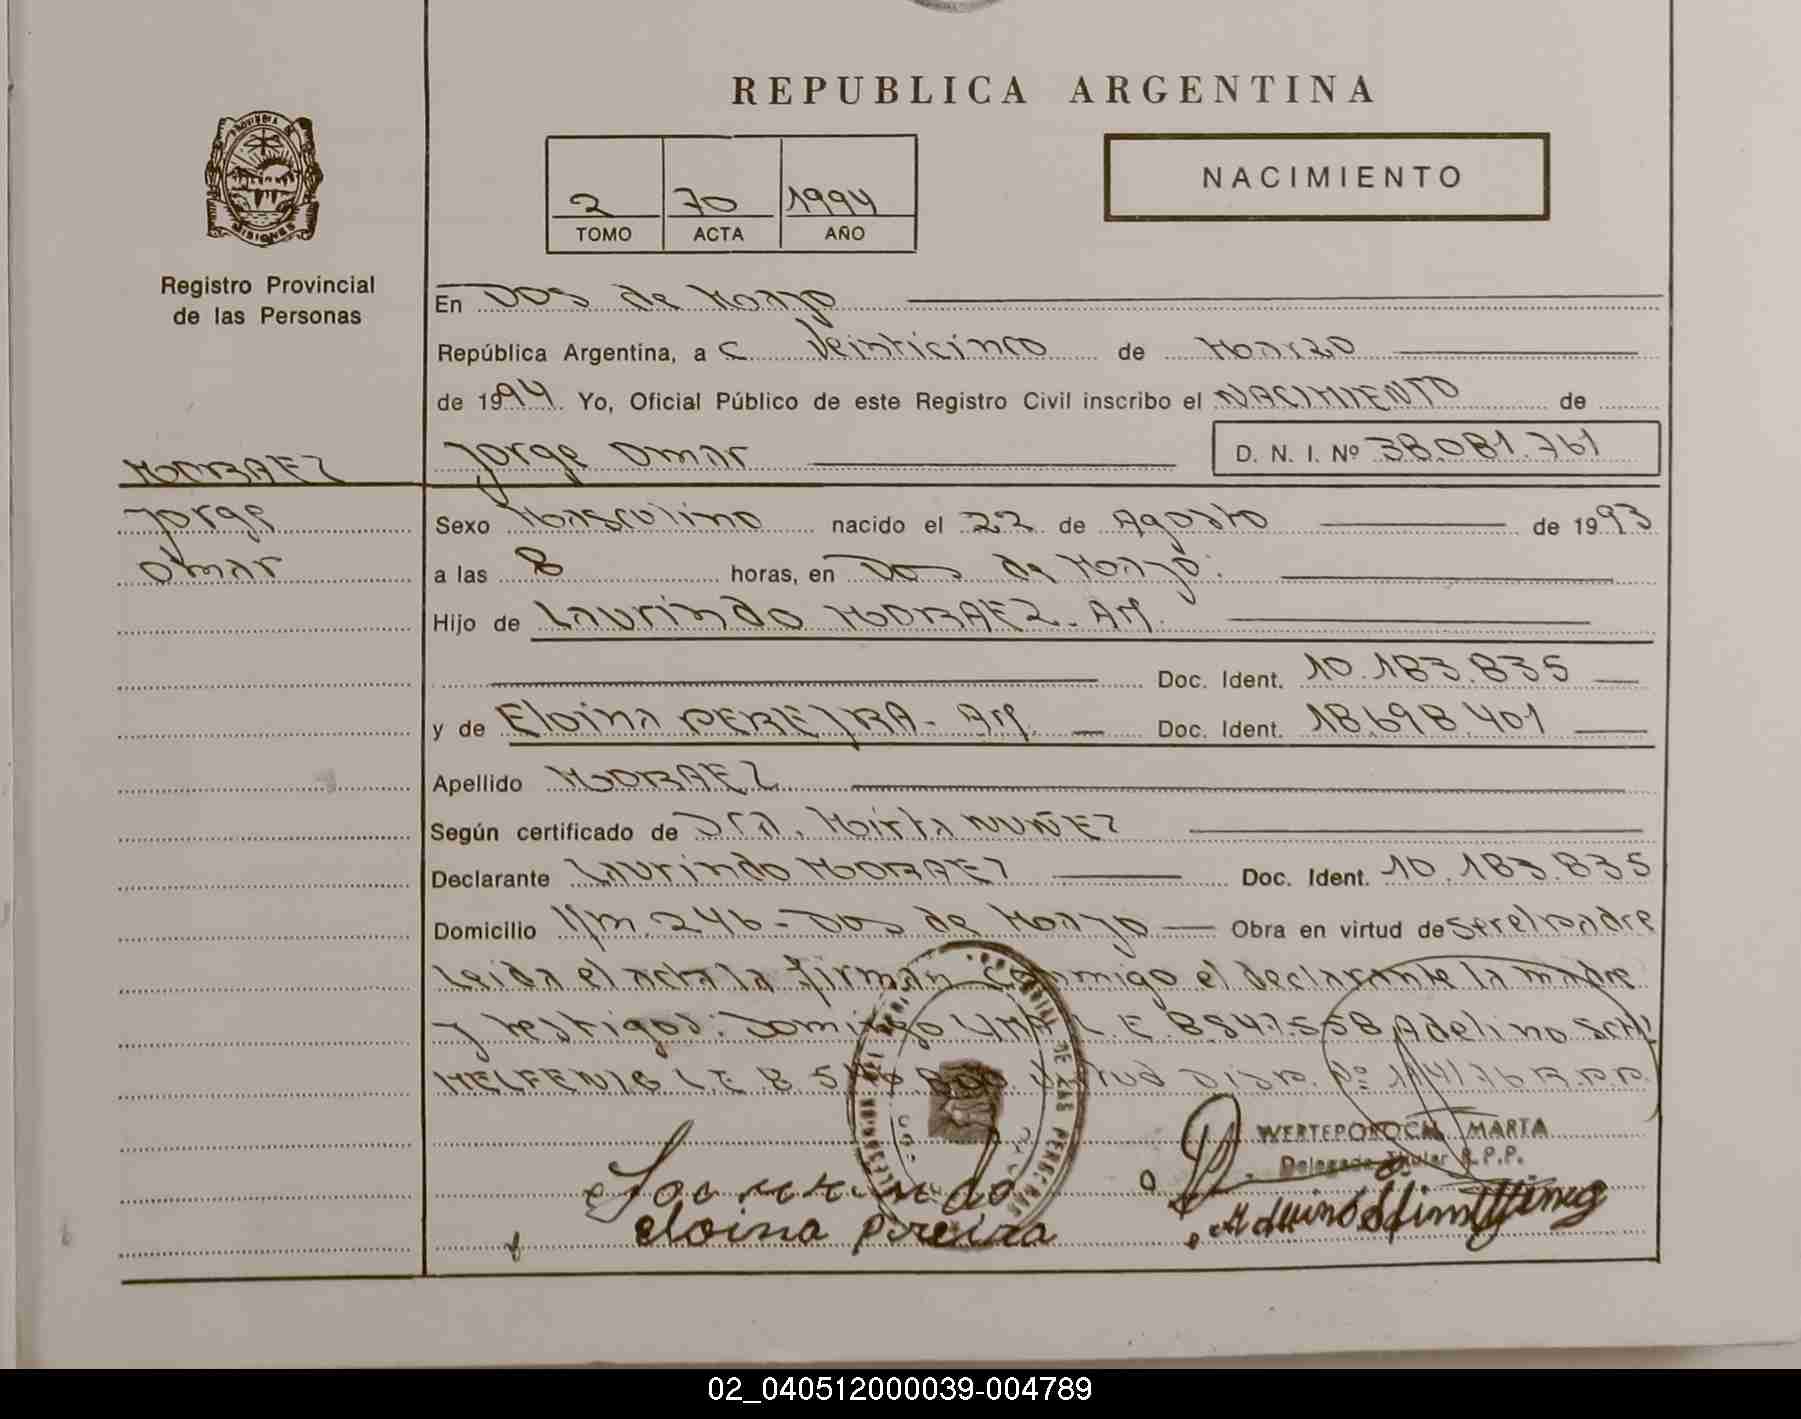 REPUBLICA ARGENTINA
NACIMIENTO
2 70 1994
TOMO ACTA AÑO
PROVINCIA DE
MISIONES
Registro Provincial
de las Personas
En Dos de Mayo
República Argentina, a c Veinticinco de Marzo
de 1994. Yo, Oficial Público de este Registro Civil inscribo el NACIMIENTO de
MORAEZ
Jorge Omar D. N. I. Nº 38.081.761
Jorge
Omar
Sexo Masculino nacido el 22 de Agosto de 1993
a las 8 horas, en Dos de Mayo.
Hijo de Laurindo MORAEZ. Arg.
Doc. Ident. 10.183.835
y de Eloina PEREIRA - Arg. Doc. Ident. 18.698.401
Apellido MORAEZ
Según certificado de Dra. Mirta NUÑEZ
Declarante Laurindo MORAEZ Doc. Ident. 10.183.835
Domicilio Km. 246 - Dos de Mayo Obra en virtud de ser el padre
Leida el acta la firman conmigo el declarante la madre
y testigos: Domingo L.E. 8547.558 Adelino SCHI
MELFENIG L.E. 8.5 Disp. Nº 114/76 R.P.P.
WERTEPOROCH MARTA
Delegada Titular R.P.P.
eloina pireira
02_040512000039-004789